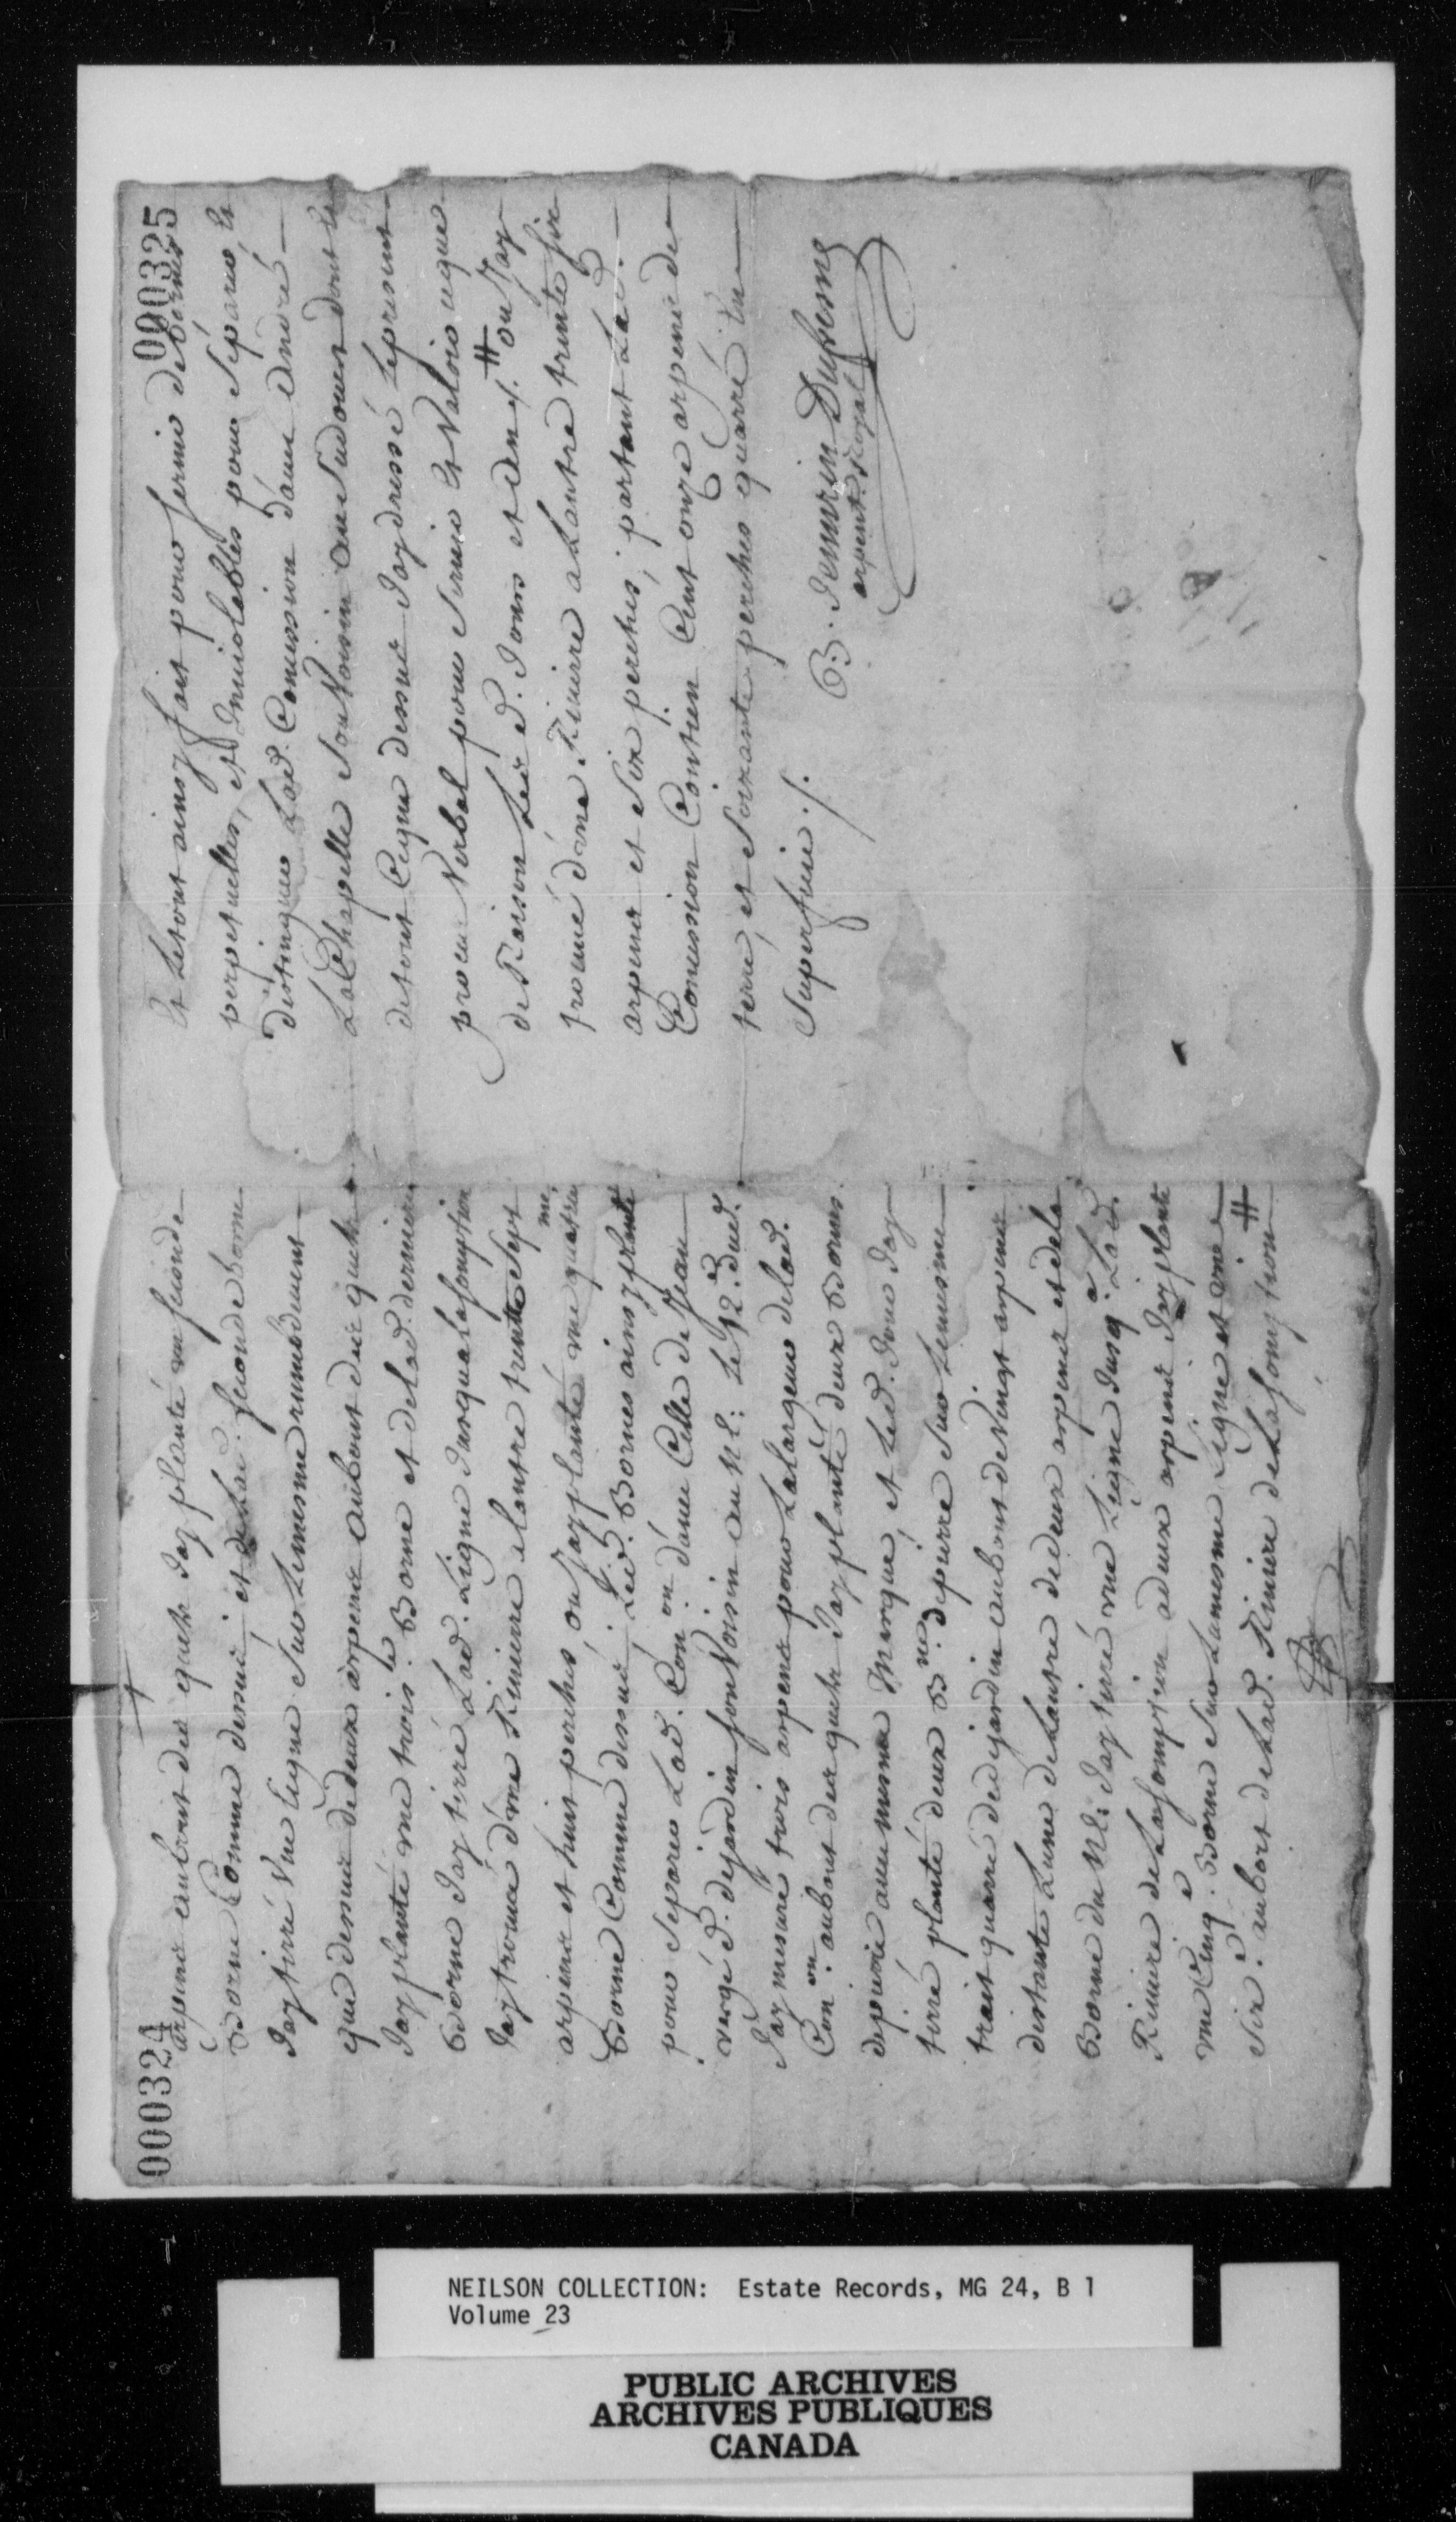 000324
arpens au bout desquels Jay planté un seconde
Borne Comme dessus, et de Lad. seconde borne
Jay tirré une Ligne sur Le mesme rumb de vent
que dessus de deux arpens au bout desquels
Jay planté une trois.e Borne et de Lad. derniere
Borne Jay tirré Lad. Ligne Jusqua Lasomption
Jay trouvé d'une Riviere a Lautre trente sept
arpens et huit perches, ou Jay planté une quatrie.me
Borne Comme dessus; Led. Bornes ainsy planté
pour separer Lad. Con.on daue Celle de Jean
vergé d. dejardin son Voisin au NE: Le 12.e dud.
Jay mesuré trois arpens pour La largeur de Lad.
Con.on au bout desquels Jay planté deux Bornes
de pierre aux mesme Marque, et Led. Jour Jay
tirré planté deux B.ne de pierre sur Le mesme
trait quarré de dejardin au bout de Vingt arpens
distante Lune de Lautre de deux arpens et de la
Borne du NE: Jay tirré une Ligne Jusq.a Lad.
Riviere de Lasomption a deux arpens Jay planté
une Cinq.e Borne sur La mesme Ligne et une
Six.e au bort de Lad. Riviere de Lasomption #
000325
Et Le tout ainsy fait pour servir de bornes
perpetuelles, et Inviolables pour Séparer, et
distinguer Lad. Concession daue André
La Chapelle Son Voisin au Sudouest dont et
de tout Ceque dessus Jay dressé Le present
procu Verbal pour Servir et Valoir ceque
de Raison Les d. Jours et an ./. # ou Jay
trouvé d'une Riviere a Lautre trente six
arpens et Six perches, partant Lad.
Concession Contien Cent onze arpens de
terre, et Soixante perches quarré en
Superficie ./.
B. Jemurin Dufresne
arpent.r Royal
NEILSON COLLECTION: Estate Records, MG 24, B 1
Volume 23
PUBLIC ARCHIVES
ARCHIVES PUBLIQUES
CANADA